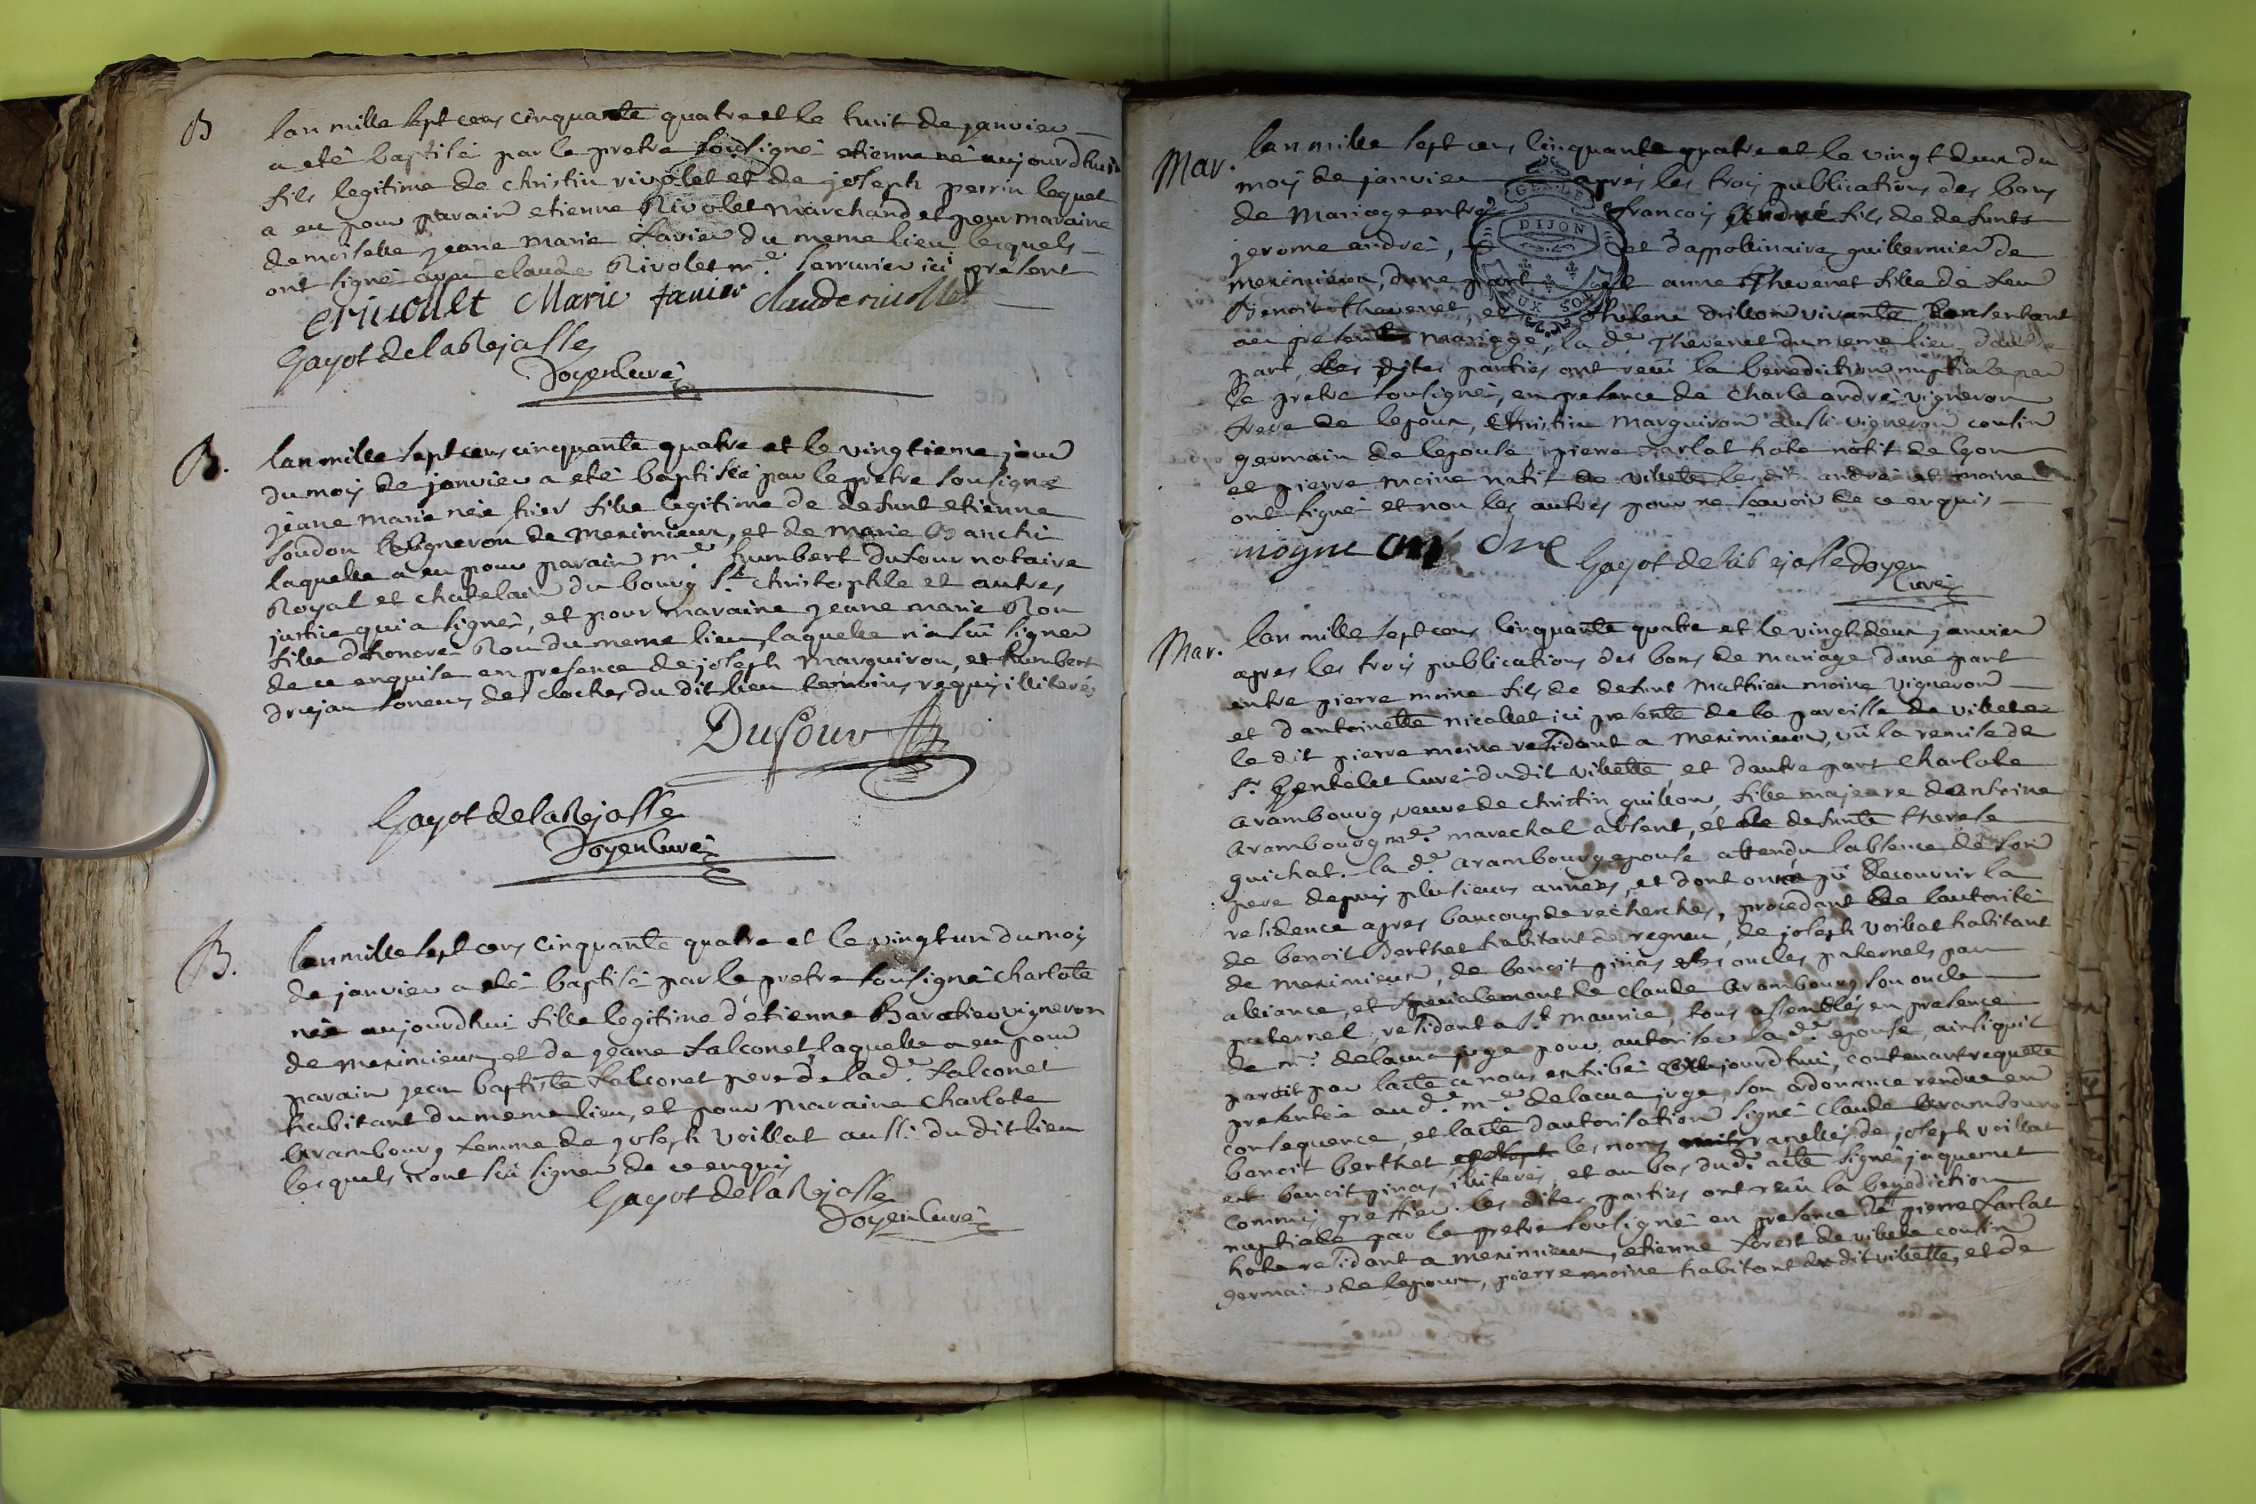 B
lan mille sept cens cinquante quatre et le huit de janvier
a eté baptisé par le pretre sousigné etienne né aujourdhuit
fils legitime de christin rivolet et de joseph perrin lequel
a eu pour parain etienne Rivolet marchand et pour maraine
demoiselle jeane marie favier du meme lieu lesquels
ont signé avec claude Rivolet me. serrurier ici present
erivollet Marie favier claude rivollet
Gayot de la Rejasse
Doyen Curé
B.
lan mille sept cens cinquante quatre et le vingtieme jour
du moy de janvier a eté baptisée par le pretre sousigné
jeane marie née hier fille legitime de defunt etienne
soudon vigneron de meximieux, et de marie Banchi
laquelle a eu pour parain me. humbert dufour notaire
Royal et chatelain du bourg St. christophle et autres
justice qui a signé, et pour maraine jeane marie Rou
fille dhonoré Rou du meme lieu, laquelle na sçu signer
de ce enquise en presence de joseph marguiron, et humbert
drujan soneur des cloches du dit lieu temoins requis illiterés
Dufour
Gayot de la Rejasse
Doyen Curé
B.
lan mille sept cens cinquante quatre et le vingt un du moy
de janvier a eté baptisé par le pretre sousigné charlote
née aujourdhui fille legitime détienne Baratier vigneron
de meximieux et de jeane falconet laquelle a eu pour
parain jean baptiste falconet pere de lad. falconet
habitant du meme lieu, et pour maraine charlote
arambourg femme de joseph voillat aussi du dit lieu
lesquels nont sçu signer de ce enquis
Gayot de la Rejasse
Doyen Curé
Mar.
lan mille sept cens cinquante quatre et le vingt deux du
moy de janvier apres les troy publications des bans
de mariage entre francoy andré fils de defunts
jerome andre, et dappollinaire guillermier de
meximieux, dune part et anne thevenet fille de feu
Benoit thevenet, et helene drillon vivante consentant
au present mariage, la de. thevenet du meme lieu dautre
part, les dites parties ont reçu la benediction nuptiale par
le pretre sousigné, en presence de charle andré vigneron
frere de lepoux, christin marguiron aussi vigneron cousin
germain de lepouse, pierre farlat hote natif de lyon
et pierre moine natif de villete les dit andré et moine
ont signé et non les autres pour ne scavoir de ce enquis
mogne an dre Gayot de la Rejasse doyen
Curé
Mar.
lan mille sept cens cinquante quatre et le vingt deux janvier
apres les troy publications des bans de mariage dune part
entre pierre moine fils de defunt mathieu moine vigneron
et dantoinette nicollet ici presente de la paroisse de villete
le dit pierre moine residant a meximieux, vü la remise de
sr. gentelet curé du dit villette, et dautre part charlote
arambourg, veuve de christin guillon, fille majeure dantoine
arambourg me. marechal absent, et de defunte therese
guichat. la de. arambourg epouse attendu labsence de son
pere depuis plusieurs années, et dont on na pü decouvrir la
residence apres baucoup de recherches, procedant de lautorité
de benoit Berthet habitant de regneu, de joseph voillat habitant
de meximieux, de benoit pinas ses oncles paternels par
alliance, et specialement de claude arambourg son oncle
paternel, residant a St. maurice, tous assemblés en presence
de mr. delacua juge pour autoriser la de. epouse, ainsi quil
paroit par lacte a nous exhibé aujourdhui, contenant requete
presentée au d. mr. delacua juge, son ordonance rendue en
consequence, et lacte dautorisation signé claude arambourg
benoit berthet les noms rapellés de joseph voillat
et benoit pinas illiterés, et au bas du d. acte signé jaquemet
commis greffier. les dites parties ont reçu la benediction
nuptiale par le pretre sousigné en presence de pierre farlat
hote residant a meximieux, etienne forest de villete cousin
germain de lepoux, pierre moine habitant du dit villette, et de
GENER
DIJON
DEUX SOLS